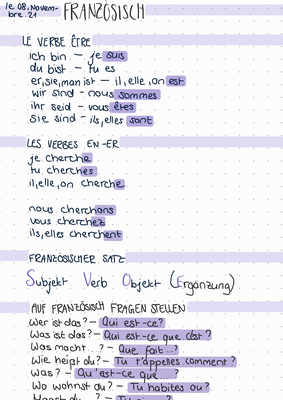 le 08. Novem-
bre. 21
FRANZÖSISCH
LE VERBE ÊTRE
ich bin – je suis
du bist – tu es
er, sie, man ist – il, elle, on est
wir sind – nous sommes
ihr seid – vous êtes
Sie sind – ils, elles sont
LES VERBES EN -ER
je cherche
tu cherches
il, elle, on cherche
nous cherchons
vous cherchez
ils, elles cherchent
FRANZÖSISCHER SATZ
Subjekt Verb Objekt (Ergänzung)
AUF FRANZÖSISCH FRAGEN STELLEN
Wer ist das? – Qui est-ce?
Was ist das? – Qui est-ce que c'est?
Was macht ...? – Que fait ...?
Wie heißt du? – Tu t'appelles comment?
Was? – Qu'est-ce que ...?
Wo wohnst du? – Tu habites où?